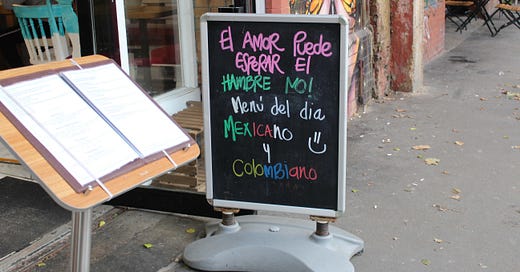 El AMOR Puede
ESPERAR El
HAMBRE NO!
Menú del dia
MEXICANO
y
COLOMBIANO